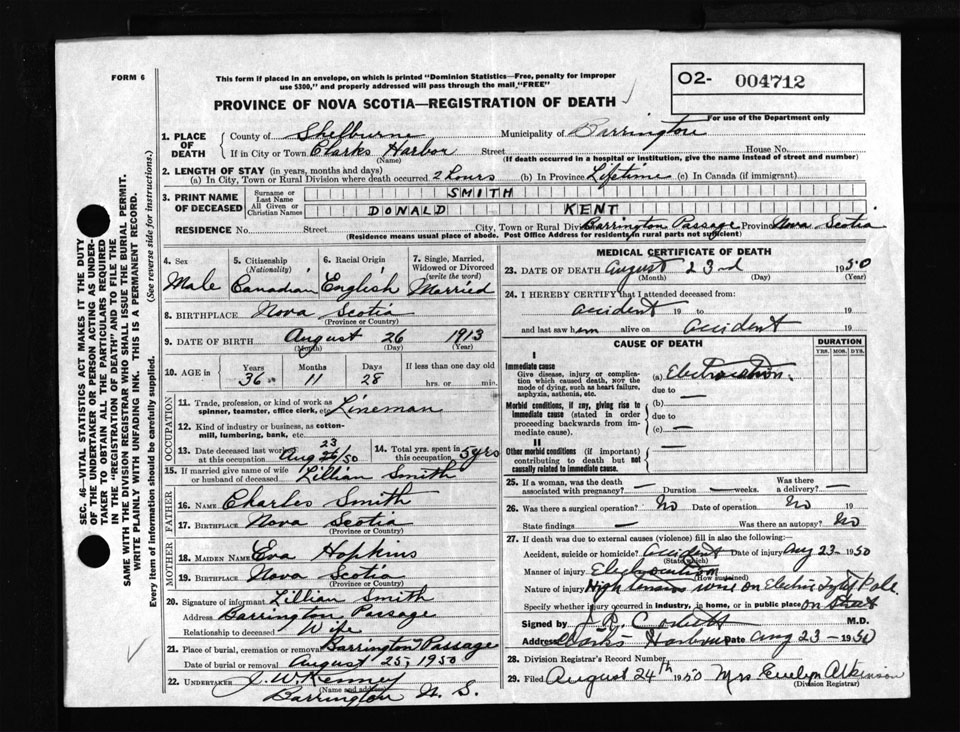 FORM 6
This form if placed in an envelope, on which is printed "Dominion Statistics—Free, penalty for improper
use $300," and properly addressed will pass through the mail, "FREE"
O2- 004712
For use of the Department only
PROVINCE OF NOVA SCOTIA—REGISTRATION OF DEATH
SEC. 46—VITAL STATISTICS ACT MAKES IT THE DUTY
OF THE UNDERTAKER OR PERSON ACTING AS UNDER-
TAKER TO OBTAIN ALL THE PARTICULARS REQUIRED
IN THE "REGISTRATION OF DEATH" AND TO FILE THE
SAME WITH THE DIVISION REGISTRAR WHO SHALL ISSUE THE BURIAL PERMIT.
WRITE PLAINLY WITH UNFADING INK. THIS IS A PERMANENT RECORD.
Every item of information should be carefully supplied. (See reverse side for instructions.)
1. PLACE OF DEATH County of Shelburne Municipality of Barrington
If in City or Town Clarks Harbor Street House No.
(Name) (If death occurred in a hospital or institution, give the name instead of street and number)
2. LENGTH OF STAY (in years, months and days)
(a) In City, Town or Rural Division where death occurred 2 hours (b) In Province Lifetime (c) In Canada (if immigrant)
3. PRINT NAME OF DECEASED
Surname or Last Name SMITH
All Given or Christian Names DONALD KENT
RESIDENCE No. Street City, Town or Rural Div. Barrington Passage Province Nova Scotia
(Residence means usual place of abode. Post Office Address for residents in rural parts not sufficient)
4. Sex Male
5. Citizenship (Nationality) Canadian
6. Racial Origin English
7. Single, Married, Widowed or Divorced (write the word) Married
8. BIRTHPLACE Nova Scotia
(Province or Country)
9. DATE OF BIRTH August 26 1913
(Month) (Day) (Year)
10. AGE in Years Months Days If less than one day old
36 11 28 hrs. or min.
OCCUPATION
11. Trade, profession, or kind of work as
spinner, teamster, office clerk, etc. Lineman
12. Kind of industry or business, as cotton-
mill, lumbering, bank, etc.
13. Date deceased last worked at this occupation Aug 23/50
14. Total yrs. spent in this occupation 5 yrs
15. If married give name of wife
or husband of deceased Lillian Smith
FATHER
16. Name Charles Smith
17. Birthplace Nova Scotia
(Province or Country)
MOTHER
18. Maiden Name Eva Hopkins
19. Birthplace Nova Scotia
(Province or Country)
20. Signature of informant Lillian Smith
Address Barrington Passage
Relationship to deceased Wife
21. Place of burial, cremation or removal Barrington Passage
Date of burial or removal August 25, 1950
22. UNDERTAKER J. W. Kenney
(Name and address)
Barrington N. S.
MEDICAL CERTIFICATE OF DEATH
23. DATE OF DEATH August 23rd 1950
(Month) (Day) (Year)
24. I HEREBY CERTIFY that I attended deceased from:
accident 19 to 19
and last saw him alive on accident 19
CAUSE OF DEATH
DURATION
YRS. MOS. DYS.
I
Immediate cause
Give disease, injury or compli-
cation which caused death, NOT the
mode of dying, such as heart failure,
asphyxia, asthenia, etc.
(a) Electrocution.
due to —
Morbid conditions, if any, giving rise to
immediate cause (stated in order
proceeding backwards from im-
mediate cause).
(b) —
due to
(c) —
II
Other morbid conditions (if important)
contributing to death but not
causally related to immediate cause.
—
25. If a woman, was the death
associated with pregnancy? — Duration — weeks. Was there a delivery? —
26. Was there a surgical operation? No Date of operation No 19
State findings — Was there an autopsy? No
27. If death was due to external causes (violence) fill in also the following:
Accident, suicide or homicide? accident Date of injury Aug 23 - 1950
(State which)
Manner of injury Electrocution
(How sustained)
Nature of injury High tension wire on Electric Light Pole.
Specify whether injury occurred in industry, in home, or in public place on Street
Signed by M.D.
Address Clarks Harbour Date Aug 23 - 1950
28. Division Registrar's Record Number
29. Filed August 24th 1950 Mrs Evelyn Atkinson
(Division Registrar)